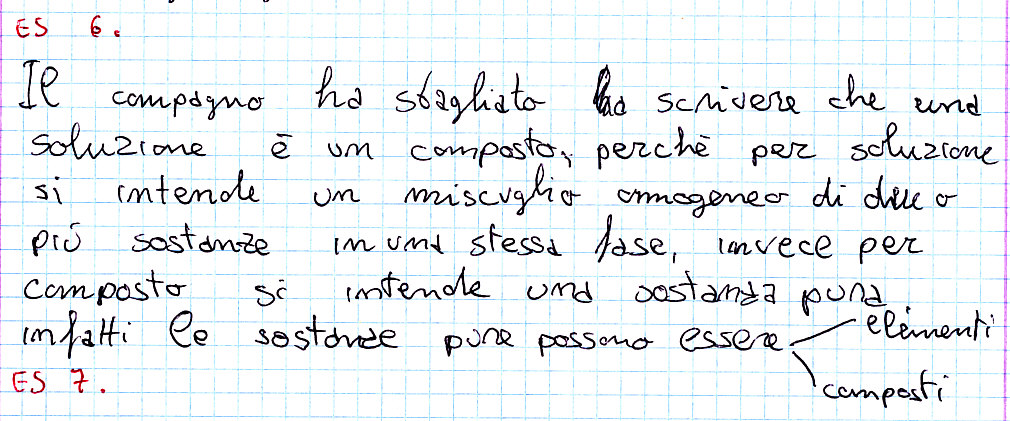 ES 6.
Il compagno ha sbagliato a scrivere che una
soluzione è un composto, perchè per soluzione
si intende un miscuglio omogeneo di due o
più sostanze in una stessa fase, invece per
composto si intende una sostanza pura
infatti le sostanze pure possono essere elementi
composti
ES 7.